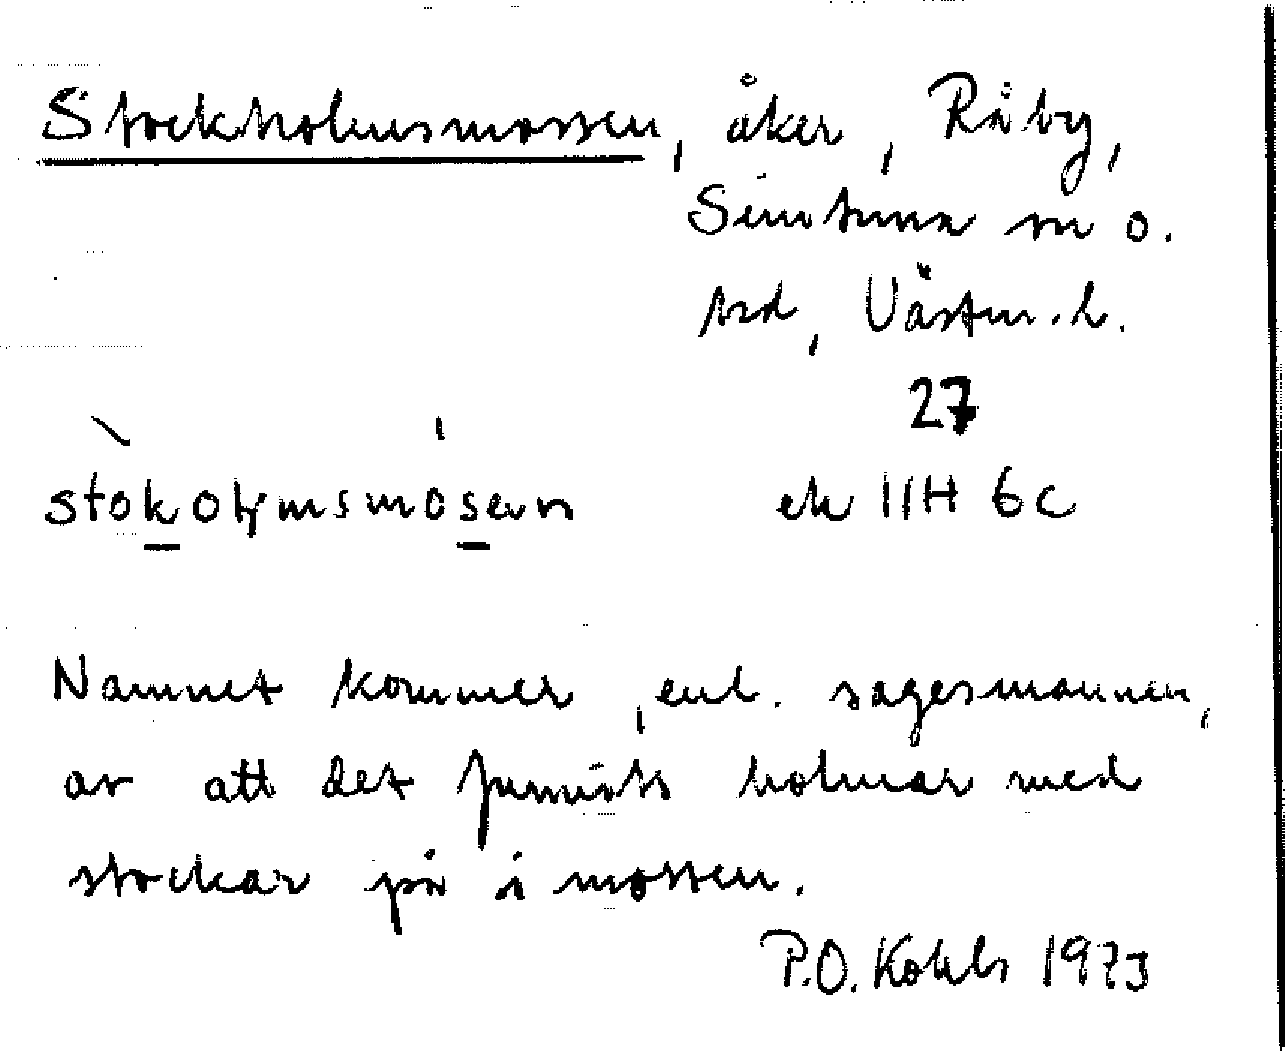 Stockholmsmossen, åker, Råby,
Simtuna sn o.
hd, Västm.l.
27
stokoljmsmosen
ek 11H 6c
Namnet kommer, enl. sagesmannen,
av att det funnits holmar med
stockar på i mossen.
P.O. Kohls 1973